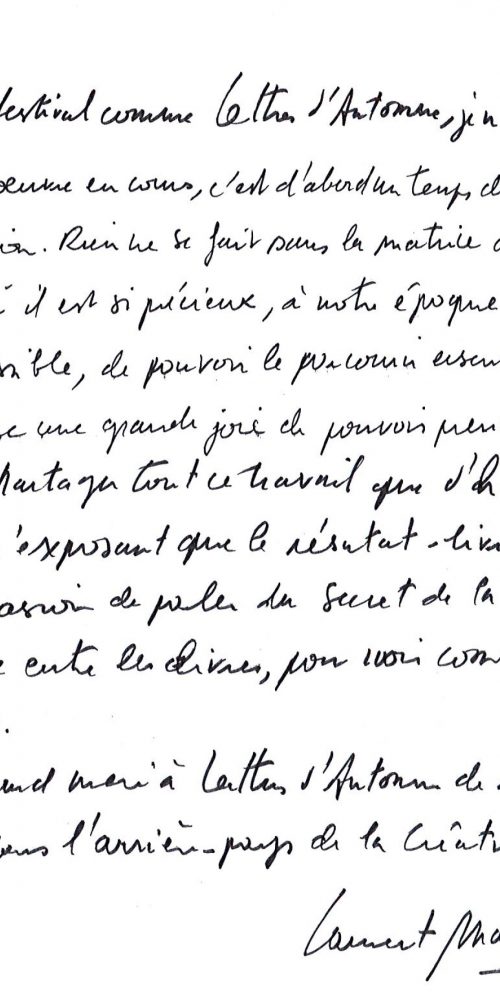 festival comme Lettres d'Automne, je n
œuvre en cours, c'est d'abord un temps d
ion. Rien ne se fait sans la matrice d
il est si précieux, à notre époque
sible, de pouvoir le parcourir ensem
une grande joie de pouvoir pren
Partager tout ce travail que d'h
n'exposant que le résutat - livr
asion de parler du secret de la
e entre les livres, pour voir com
.
and merci à Lettres d'Automne de
ans l'arrière-pays de la créati
Laurent Ma